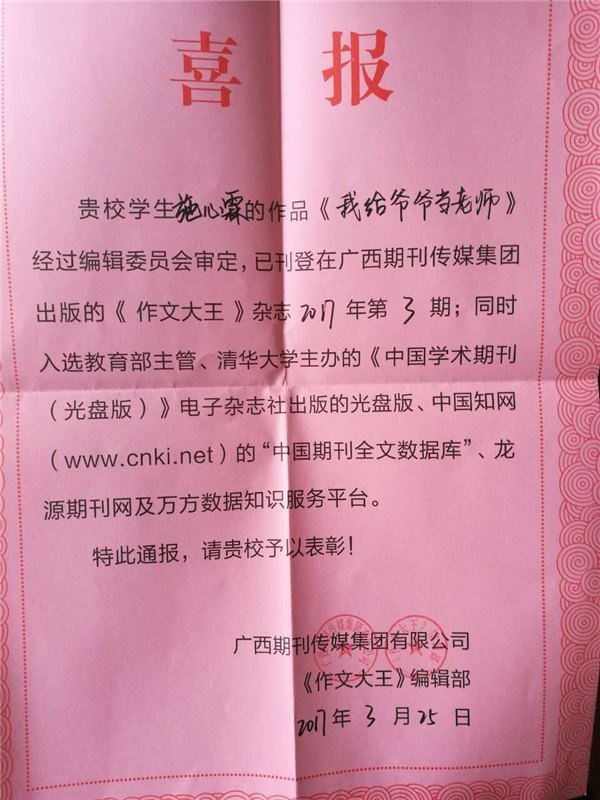 喜报
贵校学生施心霖的作品《我给爷爷当老师》
经过编辑委员会审定，已刊登在广西期刊传媒集团
出版的《作文大王》杂志2017年第3期；同时
入选教育部主管、清华大学主办的《中国学术期刊
（光盘版）》电子杂志社出版的光盘版、中国知网
（www.cnki.net）的“中国期刊全文数据库”、龙
源期刊网及万方数据知识服务平台。
特此通报，请贵校予以表彰！
广西期刊传媒集团有限公司
《作文大王》编辑部
2017年3月25日